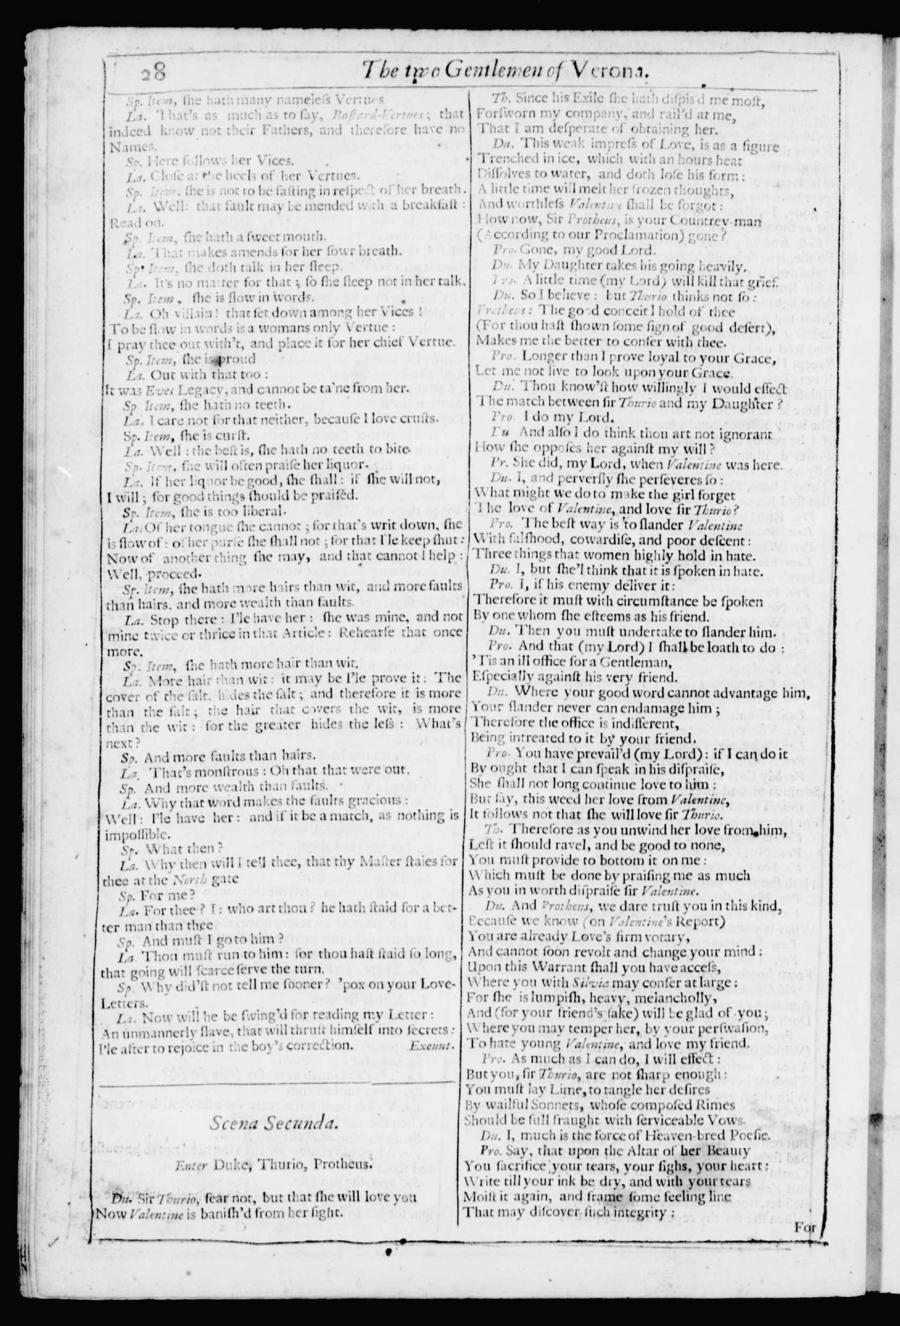 28
The two Gentlemen of Verona.
Sp. Item, ſhe hath many nameleſs Vertues
La. That's as much as to ſay, Baſtard-Vertues; that
indeed know not their Fathers, and therefore have no
Names.
Sp. Here follows her Vices.
La. Cloſe at the heels of her Vertues.
Sp. Item, ſhe is not to be faſting in reſpect of her breath.
La. Well: that fault may be mended with a breakfaſt:
Read on.
Sp. Item, ſhe hath a ſweet mouth.
La. That makes amends for her ſowr breath.
Sp. Item, ſhe doth talk in her ſleep.
La. It's no matter for that; ſo ſhe ſleep not in her talk.
Sp. Item, ſhe is ſlow in words.
La. Oh villain! that ſet down among her Vices!
To be ſlow in words is a womans only Vertue:
I pray thee out with't, and place it for her chief Vertue.
Sp. Item, ſhe is proud
La. Out with that too:
It was Eves Legacy, and cannot be ta'ne from her.
Sp Item, ſhe hath no teeth.
La. I care not for that neither, becauſe I love cruſts.
Sp. Item, ſhe is curſt.
La. Well: the beſt is, ſhe hath no teeth to bite.
Sp. Item, ſhe will often praiſe her liquor.
La. If her liquor be good, ſhe ſhall: if ſhe will not,
I will; for good things ſhould be praiſed.
Sp. Item, ſhe is too liberal.
La. Of her tongue ſhe cannot; for that's writ down, ſhe
is ſlow of: of her purſe ſhe ſhall not; for that I'le keep ſhut:
Now of another thing ſhe may, and that cannot I help:
Well, proceed.
Sp. Item, ſhe hath more hairs than wit, and more faults
than hairs, and more wealth than faults.
La. Stop there: I'le have her: ſhe was mine, and not
mine twice or thrice in that Article: Rehearſe that once
more.
Sp. Item, ſhe hath more hair than wit.
La. More hair than wit: it may be I'le prove it: The
cover of the ſalt, hides the ſalt; and therefore it is more
than the ſalt; the hair that covers the wit, is more
than the wit: for the greater hides the leſs: What's
next?
Sp. And more faults than hairs.
La. That's monſtrous: Oh that that were out.
Sp. And more wealth than faults.
La. Why that word makes the faults gracious:
Well: I'le have her: and if it be a match, as nothing is
impoſſible.
Sp. What then?
La. Why then will I tell thee, that thy Maſter ſtaies for
thee at the North gate
Sp. For me?
La. For thee? I: who art thou? he hath ſtaid for a bet-
ter man than thee
Sp. And muſt I go to him?
La Thou muſt run to him: for thou haſt ſtaid ſo long,
that going will ſcarce ſerve the turn.
Sp. Why did'ſt not tell me ſooner? 'pox on your Love-
Letters.
La. Now will he be ſwing'd for reading my Letter:
An unmannerly ſlave, that will thruſt himſelf into ſecrets:
I'le after to rejoice in the boy's correction. Exeunt.
Scena Secunda.
Enter Duke, Thurio, Protheus.
Du. Sir Thurio, fear not, but that ſhe will love you
Now Valentine is baniſh'd from her ſight.
Th. Since his Exile ſhe hath diſpis'd me moſt,
Forſworn my company, and rail'd at me,
That I am deſperate of obtaining her.
Du. This weak impreſs of Love, is as a figure
Trenched in ice, which with an hours heat
Diſſolves to water, and doth loſe his form:
A little time will melt her frozen thoughts,
And worthleſs Valentine ſhall be forgot:
How now, Sir Protheus, is your Countrey-man
(According to our Proclamation) gone?
Pro. Gone, my good Lord.
Du. My Daughter takes his going heavily.
Pro. A little time (my Lord) will kill that grief.
Du. So I believe: but Thurio thinks not ſo:
Protheus: The good conceit I hold of thee
(For thou haſt ſhown ſome ſign of good deſert),
Makes me the better to confer with thee.
Pro. Longer than I prove loyal to your Grace,
Let me not live to look upon your Grace.
Du. Thou know'ſt how willingly I would effect
The match between ſir Thurio and my Daughter?
Pro. I do my Lord.
Du And alſo I do think thou art not ignorant
How ſhe oppoſes her againſt my will?
Pr. She did, my Lord, when Valentine was here.
Du. I, and perverſly ſhe perſeveres ſo:
What might we do to make the girl forget
The love of Valentine, and love ſir Thurio?
Pro. The beſt way is to ſlander Valentine
With falſhood, cowardiſe, and poor deſcent:
Three things that women highly hold in hate.
Du. I, but ſhe'l think that it is ſpoken in hate.
Pro. I, if his enemy deliver it:
Therefore it muſt with circumſtance be ſpoken
By one whom ſhe eſteems as his friend.
Du. Then you muſt undertake to ſlander him.
Pro. And that (my Lord) I ſhall be loath to do:
'Tis an ill office for a Gentleman,
Eſpecially againſt his very friend.
Du. Where your good word cannot advantage him,
Your ſlander never can endamage him;
Therefore the office is indifferent,
Being intreated to it by your friend.
Pro. You have prevail'd (my Lord): if I can do it
By ought that I can ſpeak in his diſpraiſe,
She ſhall not long continue love to him:
But ſay, this weed her love from Valentine,
It follows not that ſhe will love ſir Thurio.
Th. Therefore as you unwind her love from him,
Leſt it ſhould ravel, and be good to none,
You muſt provide to bottom it on me:
Which muſt be done by praiſing me as much
As you in worth diſpraiſe ſir Valentine.
Du. And Protheus, we dare truſt you in this kind,
Becauſe we know (on Valentine's Report)
You are already Love's firm votary,
And cannot ſoon revolt and change your mind:
Upon this Warrant ſhall you have acceſs,
Where you with Silvia may confer at large:
For ſhe is lumpiſh, heavy, melancholly,
And (for your friend's ſake) will be glad of you;
Where you may temper her, by your perſwaſion,
To hate young Valentine, and love my friend.
Pro. As much as I can do, I will effect:
But you, ſir Thurio, are not ſharp enough:
You muſt lay Lime, to tangle her deſires
By wailful Sonnets, whoſe compoſed Rimes
Should be full fraught with ſerviceable Vows.
Du. I, much is the force of Heaven-bred Poeſie.
Pro. Say, that upon the Altar of her Beauty
You ſacrifice your tears, your ſighs, your heart:
Write till your ink be dry, and with your tears
Moiſt it again, and frame ſome feeling line
That may diſcover ſuch integrity:
For